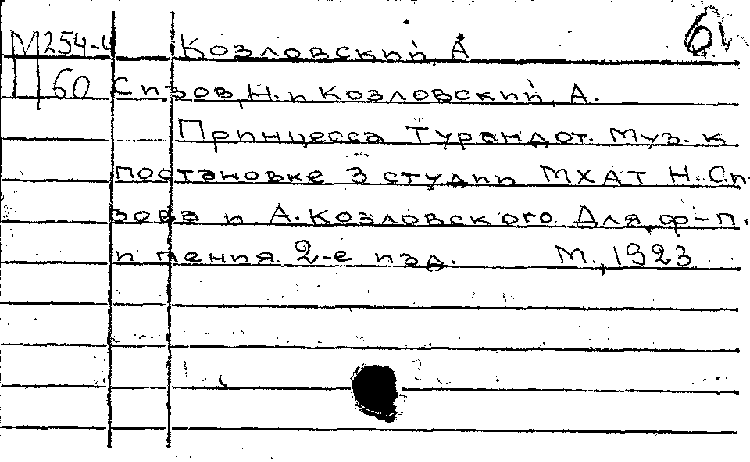 М254-4 Козловский, А 61
60 Сизов, Н. и Козловский, А.
Принцесса Турандот. Муз. к
постановке 3 студии МХАТ Н. Си-
зова и А. Козловского. Для ф-п.
и пения. 2-е изд. М., 1923